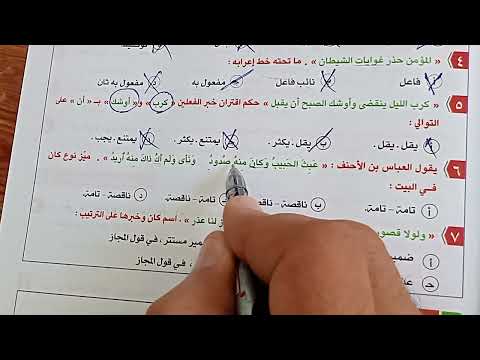 توكيد
٤ « المؤمن حذر غوايات الشيطان » . ما تحته خط إعرابه :
أ فاعل ب نائب فاعل ج مفعول به د مفعول به ثان
٥ « كرب الليل ينقضى وأوشك الصبح أن يقبل » حكم اقتران خبر الفعلين « كرب » و « أوشك » بـ « أن » على
التوالي :
أ يقل . يقل . ب يقل . يكثر . ج يمتنع . يكثر . د يمتنع . يجب .
٦ يقول العباس بن الأحنف : « عَبِثَ الحَبيبُ وَكانَ مِنهُ صُدودُ وَنَأى وَلَم أَكُ ذاكَ مِنهُ أُريدُ » . ميّز نوع كان
في البيت :
أ تامة - تامة . ب ناقصة - ناقصة . تامة - ناقصة . د ناقصة - تامة .
٧ « ولولا قصور لنا عذر » . اسم كان وخبرها على الترتيب :
أ ضمير مستتر ، في قول المجاز
ج ، في قول المجاز